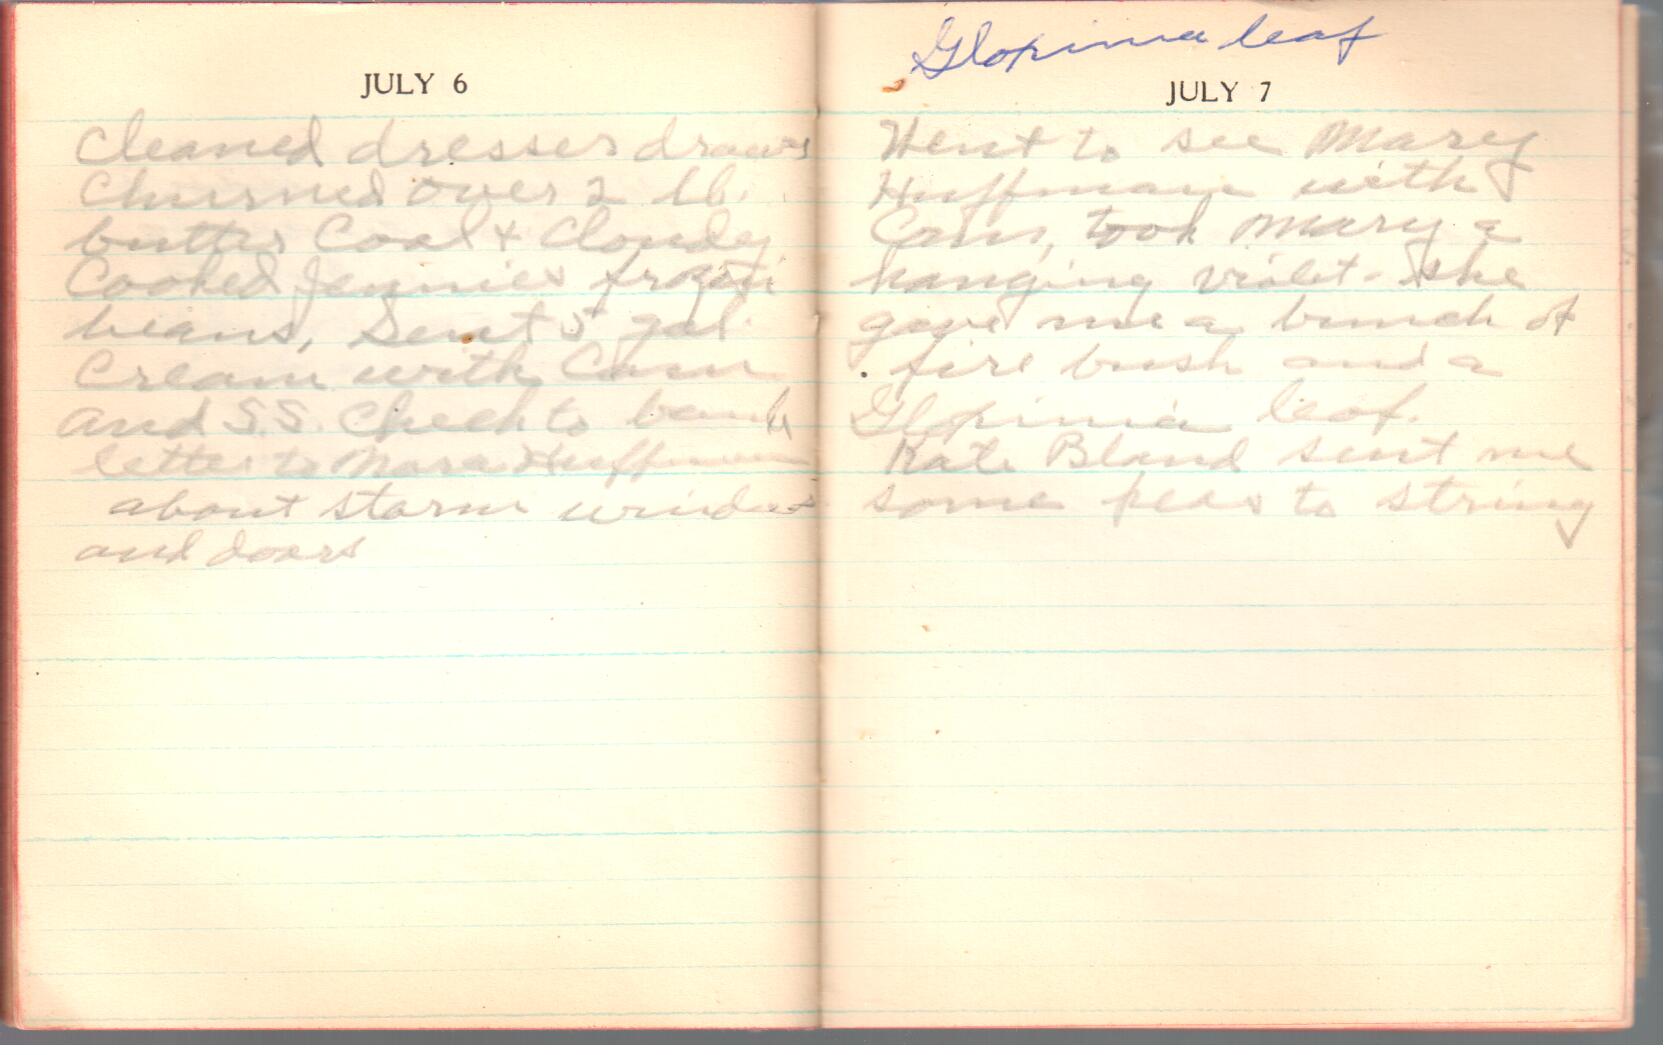 JULY 6
Cleaned dresser draws
Churned over 2 lb.
butter Cool & Cloudy
Cooked Jennies frozen
beans, Sent 5 gal.
Cream with Cam
and S.S. Check to bank
letter to Huffman
about storm windows
and doors
Glopinia leaf
JULY 7
Went to see Mary
Huffman with
Cam, took Mary a
hanging violet - She
gave me a bunch of
fire bush and a
Glopinia leaf.
Kate Bland sent me
some peas to string